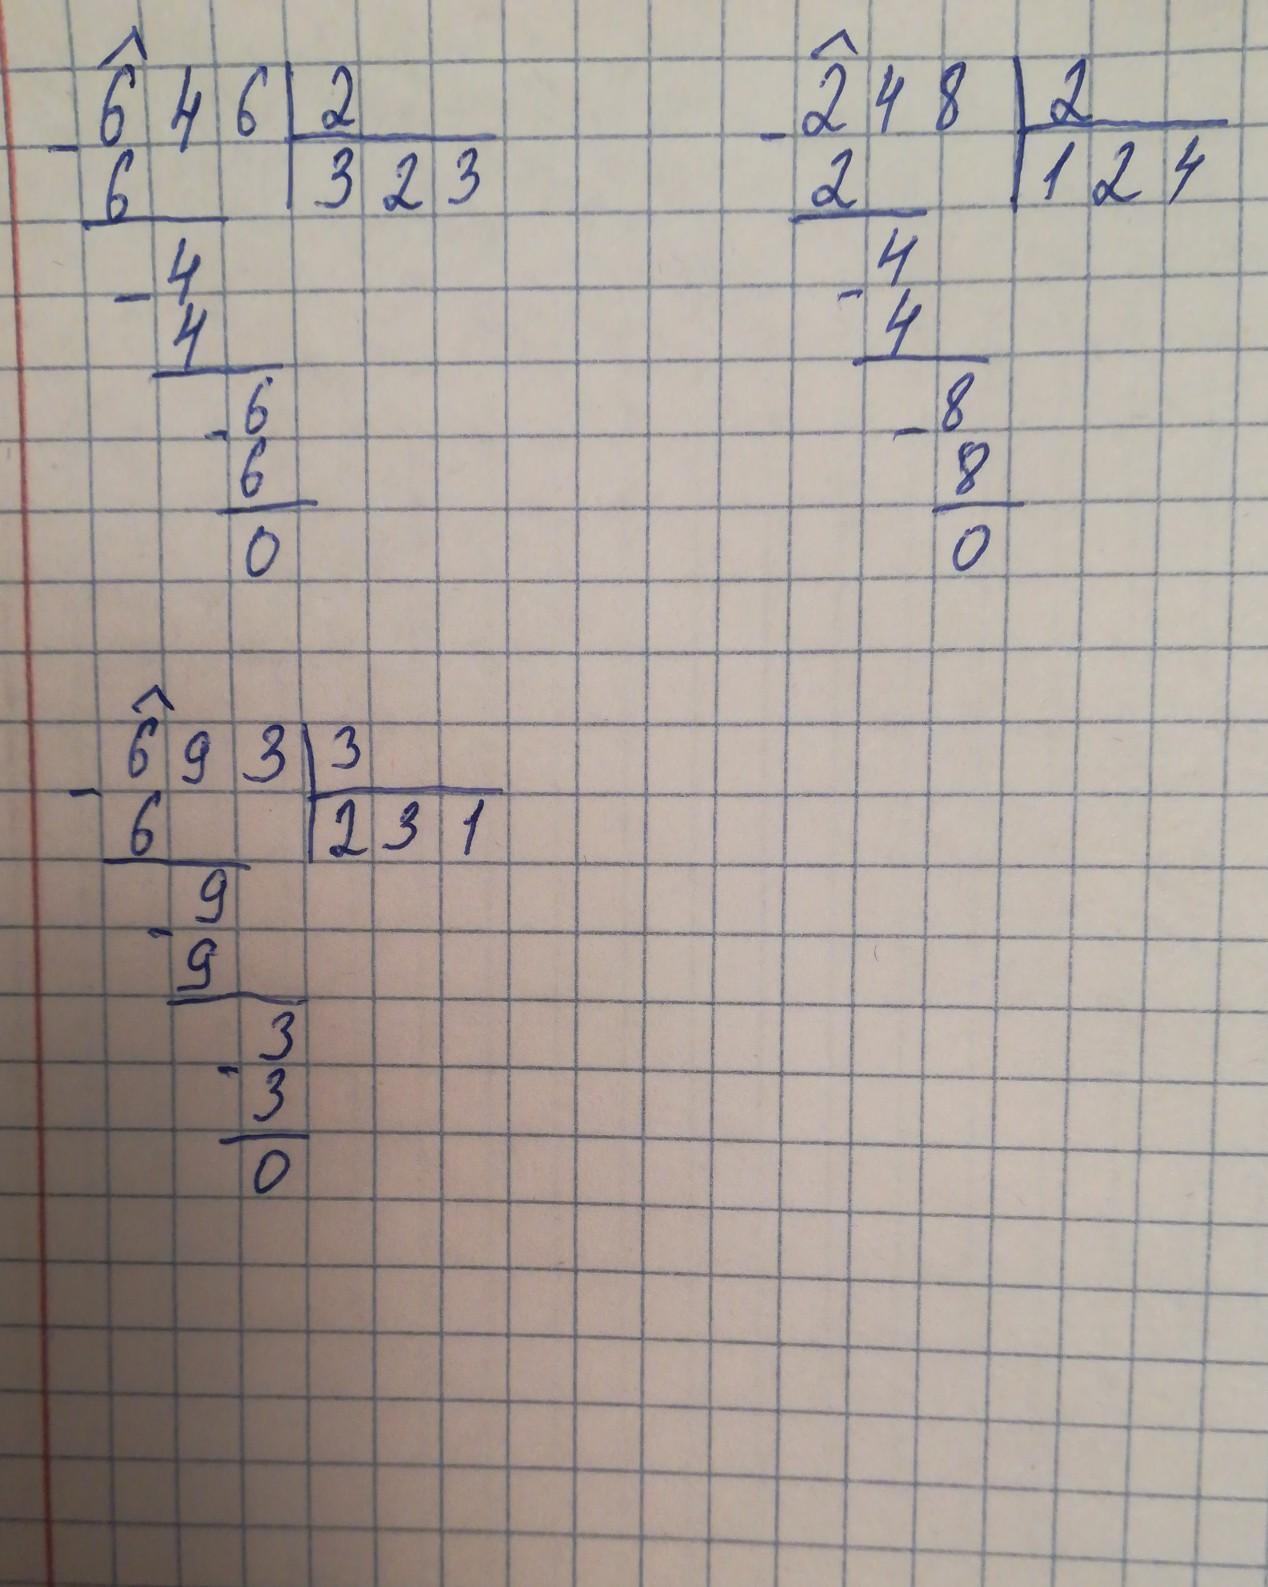 646 | 2
- 6 | 323
- 4
4
- 6
6
0
248 | 2
- 2 | 124
- 4
4
- 8
8
0
693 | 3
- 6 | 231
- 9
9
- 3
3
0